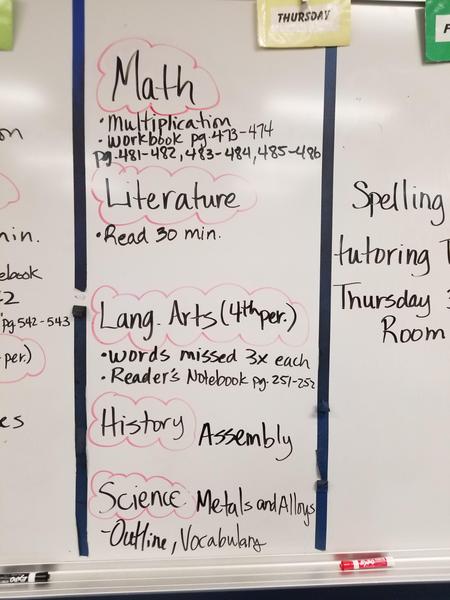 THURSDAY
F
Math
• Multiplication
• workbook pg. 473-474
pg. 481-482, 483-484, 485-486
Literature
• Read 30 min.
Lang. Arts (4th per.)
• words missed 3x each
• Reader's Notebook pg. 251-252
History Assembly
Science Metals and Alloys
- Outline, Vocabulary
on
min.
ebook
2
pg 542-543
per.)
es
Spelling
tutoring T
Thursday 3
Room
EXPO